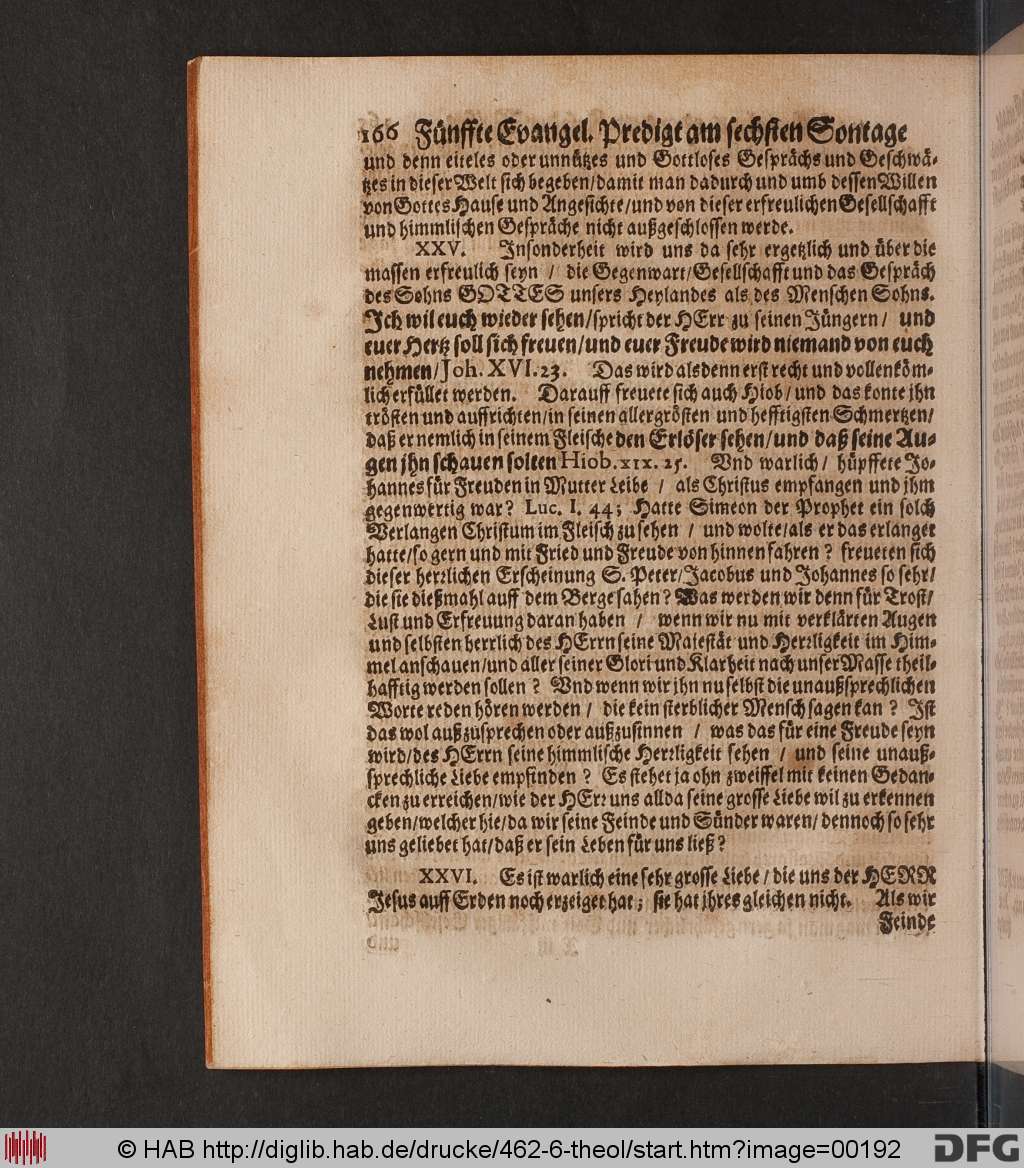 166 Fünffte Evangel. Predigt am sechsten Sontage
und denn eiteles oder unnützes und Gottloses Gesprächs und Geschwä-
tzes in dieser Welt sich begeben/damit man dadurch und umb dessen Willen
von Gottes Hause und Angesichte/und von dieser erfreulichen Gesellschafft
und himmlischen Gespräche nicht außgeschlossen werde.
XXV. Insonderheit wird uns da sehr ergetzlich und über die
massen erfreulich seyn / die Gegenwart/Gesellschafft und das Gespräch
des Sohns GOTTES unsers Heylandes als des Menschen Sohns.
Ich wil euch wieder sehen/spricht der HErr zu seinen Jüngern/ und
euer Hertz soll sich freuen/und euer Freude wird niemand von euch
nehmen/Joh. XVI. 23. Das wird alsdenn erst recht und vollenköm-
lich erfüllet werden. Darauff freuete sich auch Hiob/ und das konte jhn
trösten und auffrichten/in seinen allergrösten und hefftigsten Schmertzen/
daß er nemlich in seinem Fleische den Erlöser sehen/und daß seine Au-
gen jhn schauen solten Hiob. XIX. 25. Vnd warlich/ hüpffete Jo-
hannes für Freuden in Mutter Leibe / als Christus empfangen und jhm
gegenwertig war? Luc. I. 44; Hatte Simeon der Prophet ein solch
Verlangen Christum im Fleisch zu sehen / und wolte/als er das erlanget
hatte/so gern und mit Fried und Freude von hinnen fahren? freueten sich
dieser herrlichen Erscheinung S. Peter/Jacobus und Johannes so sehr/
die sie dießmahl auff dem Berge sahen? Was werden wir denn für Trost/
Lust und Erfreuung daran haben / wenn wir nu mit verklärten Augen
und selbsten herrlich des HErrn seine Majestät und Herrligkeit im Him-
mel anschauen/und aller seiner Glori und Klarheit nach unser Masse theil-
hafftig werden sollen? Vnd wenn wir jhn nu selbst die unaußsprechlichen
Worte reden hören werden/ die kein sterblicher Mensch sagen kan? Ist
das wol außzusprechen oder außzusinnen / was das für eine Freude seyn
wird/des HErrn seine himmlische Herrligkeit sehen / und seine unauß-
sprechliche Liebe empfinden? Es stehet ja ohn zweiffel mit keinen Gedan-
cken zu erreichen/wie der HErr uns allda seine grosse Liebe wil zu erkennen
geben/welcher hie/da wir seine Feinde und Sünder waren/ dennoch so sehr
uns geliebet hat/daß er sein Leben für uns ließ?
XXVI. Es ist warlich eine sehr grosse Liebe/ die uns der HERR
Jesus auff Erden noch erzeiget hat; sie hat jhres gleichen nicht. Als wir
Feinde
© HAB http://diglib.hab.de/drucke/462-6-theol/start.htm?image=00192
DFG